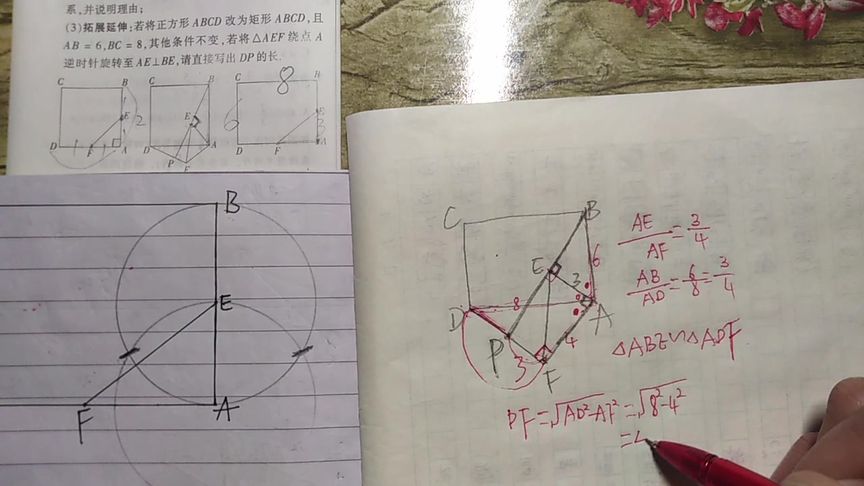 系,并说明理由;
(3)拓展延伸:若将正方形ABCD改为矩形ABCD,且
AB=6,BC=8,其他条件不变,若将△AEF绕点A
逆时针旋转至AE⊥BE,请直接写出DP的长.
C B
E
D F A
2
C B
E
D A
P F
C 8 B
6 E 3
D F A
B
E
F A
C B
E 3 6
D 8 A
P 4
3 F
AE/AF=3/4
AB/AD=6/8=3/4
△ABE∽△ADF
DF=√AD²-AF²=√8²-4²
=4